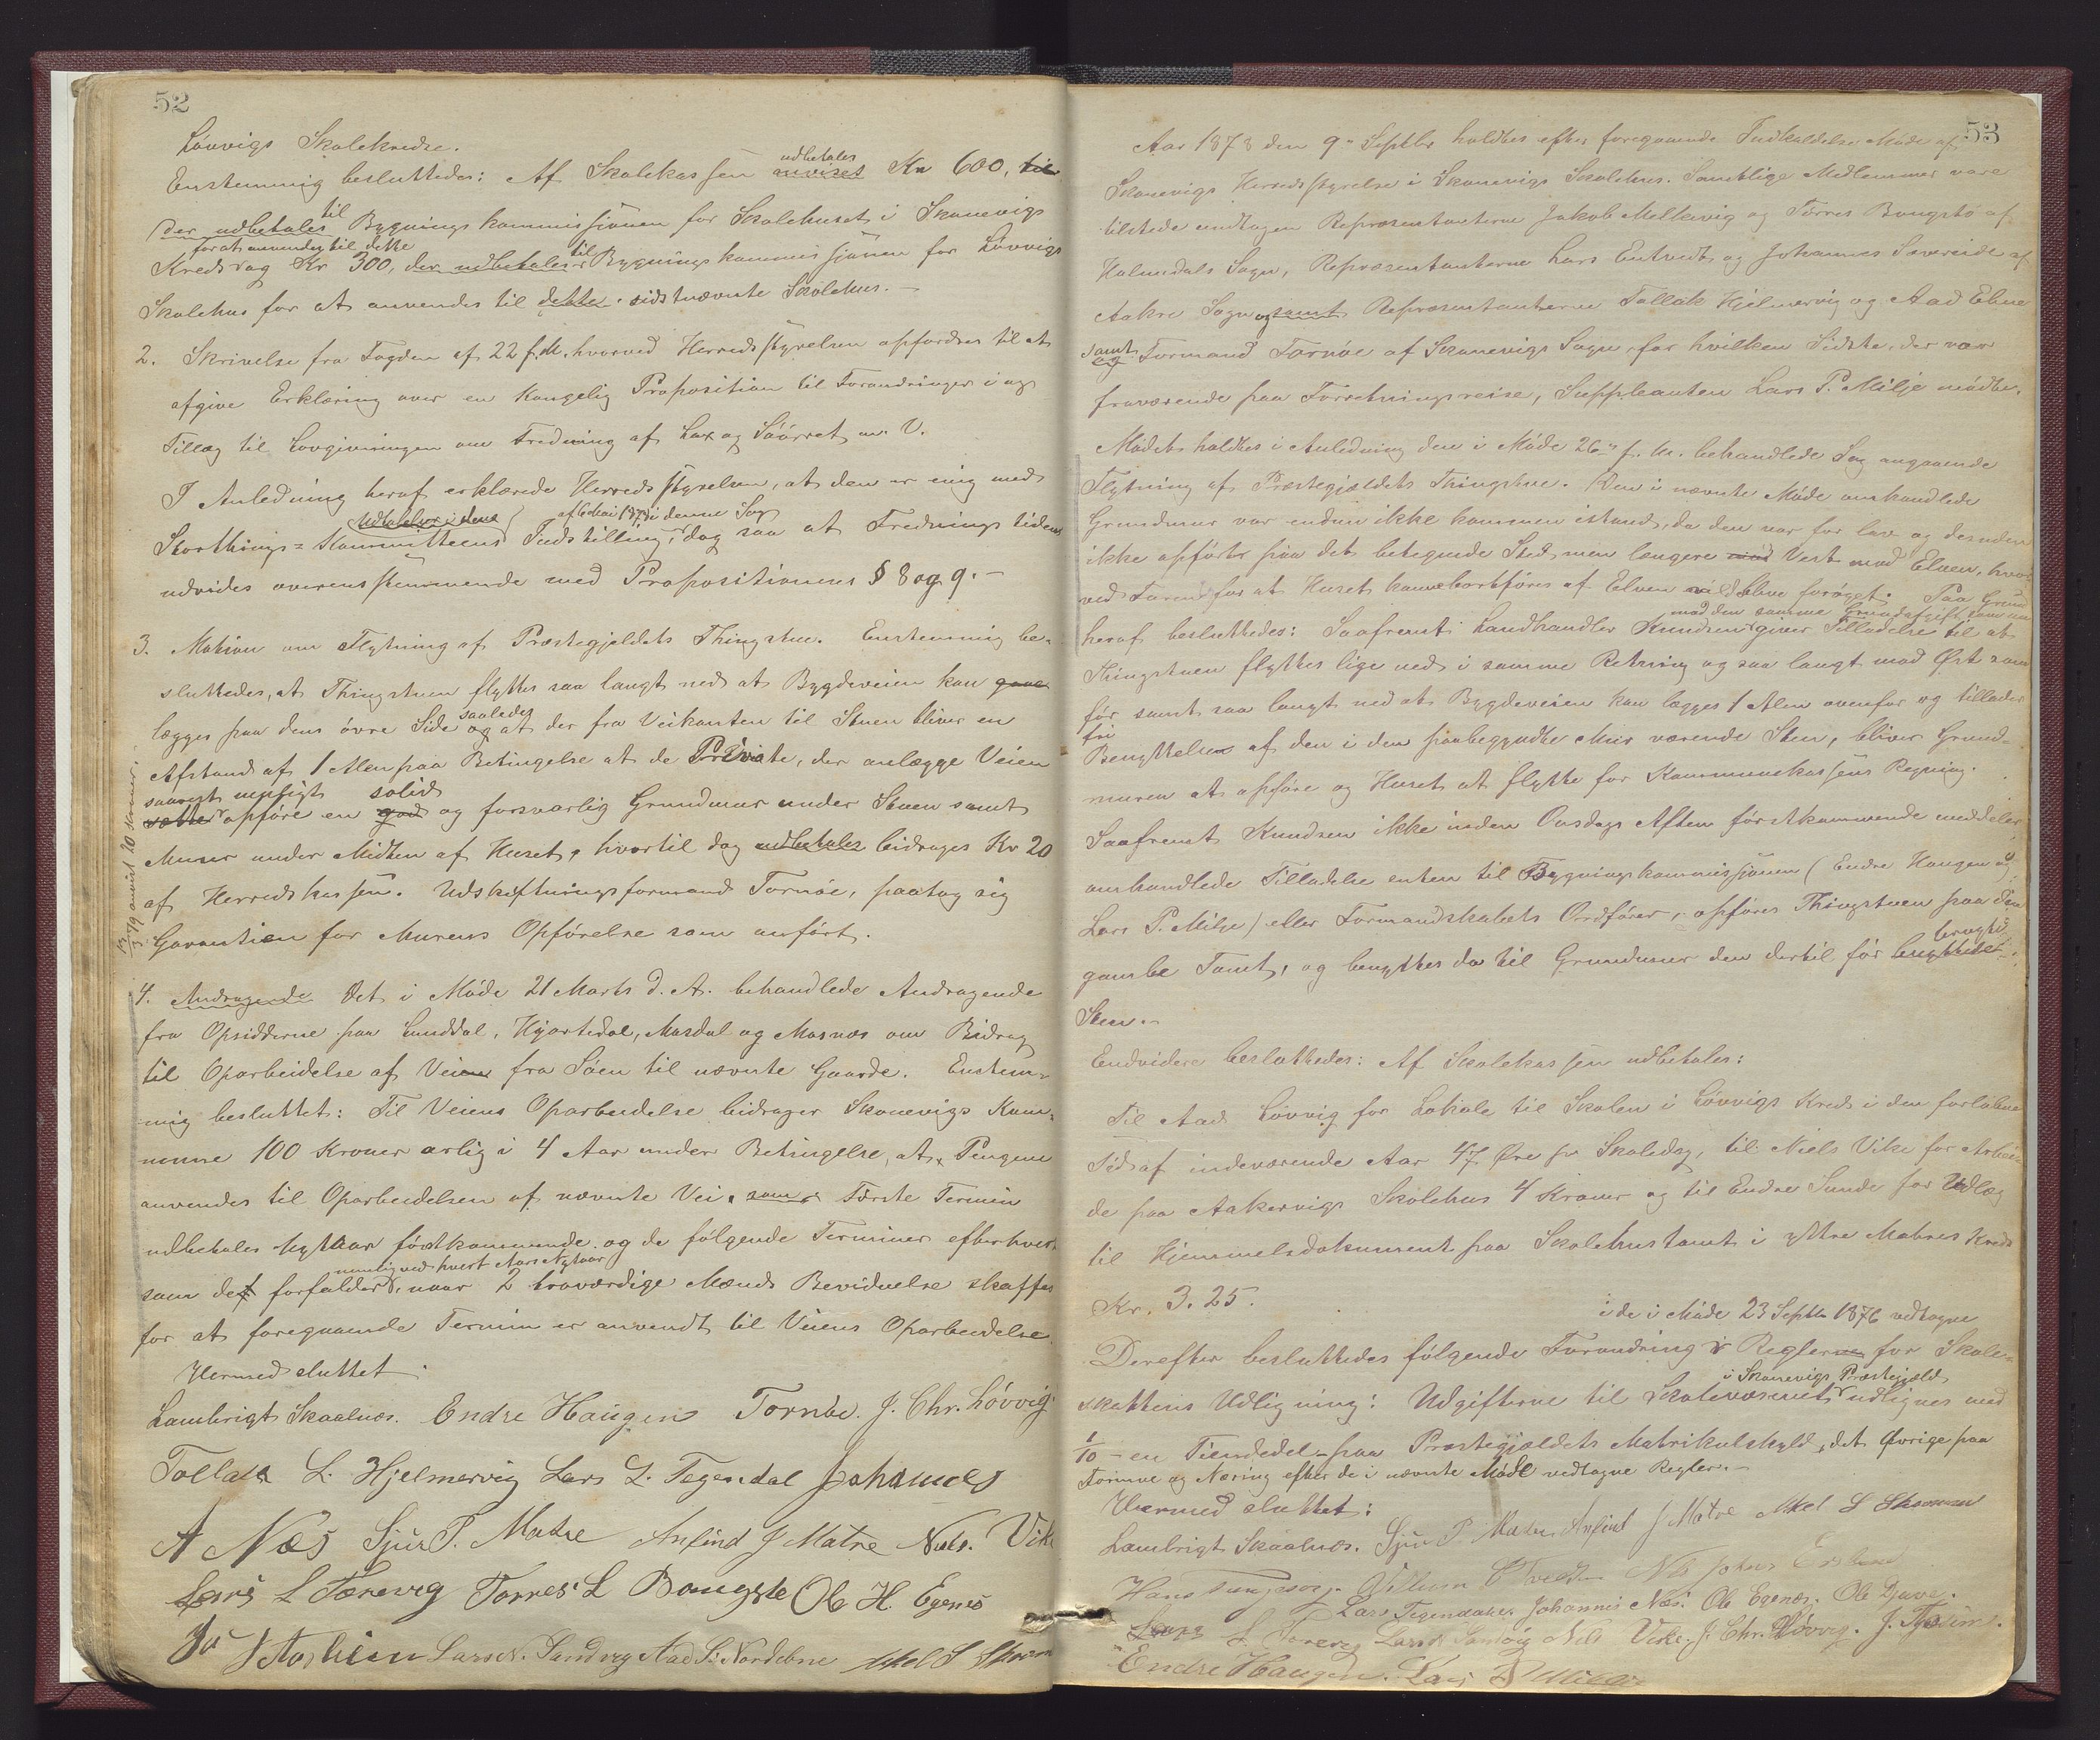 52
Løvvigs Skolekreds.
Enstemmig besluttedes: Af Skolekassen anviset udbetales Kr 600, til
der udbetales til Bygningskommissjonen for Skolehuset i Skonevigs
Kreds og Kr 300, for at anvendes til dette der udbetales til Bygningskommissjonen for Løvvigs
Skolehus for at anvendes til dette sidstnævnte Skolehus.-
2. Skrivelse fra Fogden af 22 f. M. hvorved Herredsstyrelsen opfordres til at
afgive Erklæring over en Kongelig Proposition til Forandringer i og
Tillæg til Lovgivningen om Fredning af Lax og Søørret m. V.
I Anledning heraf erklærede Herredsstyrelsen, at den er enig med
Storthings-Kommitteens Udtalelse i dens Indstilling i denne Sag, dog saa at Fredningstiden
udvides overensstemmende med Propositionens § 8 og 9.-
3. Motion om Flytning af Præstegjeldets Thingstue. Enstemmig be-
sluttedes, at Thingstuen flyttes saa langt ned at Bygdeveien kan gaae
lægges paa dens øvre Side og saaledes at der fra Veikanten til Stuen bliver en
Afstand af 1 Alen paa Betingelse at de Private, der anlægge Veien
saavidt muligt opføre en god solid og forsvarlig Grundmur under Stuen samt
Murer under Midten af Huset, hvortil dog udbetales bidrages Kr 20
af Herredskassen. Udskiftningsformand Tornøe, paatog sig
Garantien for Murens Opførelse som anført.
13/3 79 anvist 20 Kroner.
4. Andragende Det i Møde 21 Marts d. A. behandlede Andragende
fra Opsidderne paa Lunddal, Hjortedal, Mosdal og Mosnæs om Bidrag
til Oparbeidelse af Veien fra Søen til nævnte Gaarde. Enstem-
mig besluttet: Til Veiens Oparbeidelse bidrager Skonevigs Kom-
mune 100 Kroner aarlig i 4 Aar under Betingelse, at Pengene
anvendes til Oparbeidelsen af nævnte Vei, som Første Termin
udbetales Nytaar førstkommende og de følgende Terminer efterhvert
som de forfalder, nemlig ved hvert Aars Nytaar naar 2 troværdige Mænds Bevidnelse skaffes
for at foregaaende Termin er anvendt til Veiens Oparbeidelse.
Hermed sluttet.
Lambrigt Skaalnæs. Endre Haugen Tornøe. J. Chr. Løvvig.
Tollak L. Hjelmervig Lars L. Tegendal Johannes
A Næs Sjur P. Matre Anfind J Matre Nils. Vike
Lars L Torevig Torres L Bougstø Ole H. Egenes
Lars N. Sandvig Aad S. Nordebne Mikel S
53
Aar 1878 den 9de Septbr holdtes efter foregaaende Indkaldelse Møde af
Skonevigs Herredsstyrelse i Skonevigs Skolehus. Samtlige Medlemmer vare
tilstede undtagen Repræsentanterne Jakob Melkevig og Torres Bougstø af
Holmedals Sogn, Repræsentanterne Lars Entvedt og Johannes Søvereide af
Aakre Sogn og samt Repræsentanterne Tollak Hjelmervig og Aad Ebne
og samt Formand Tornøe af Skonevigs Sogn, for hvilken Sidste, der var
fraværende paa Forretningsreise, Suppleanten Lars P. Milje mødte.
Mødet holdtes i Anledning den i Møde 26de f. M. behandlede Sag angaaende
Flytning af Præstegjældets Thingstue. Den i nævnte Møde omhandlede
Grundmur var endnu ikke kommen istand, da den var for lav og desuden
ikke opført paa det betegnede Sted, men længere mod Vest mod Elven, hvor-
ved Faren for at Huset kan bortføres af Elven vilde blive forøget. Paa Grund
heraf besluttedes: Saafremt Landhandler Knudsen mod den samme Grundafgift som nu giver Tilladelse til at
Thingstuen flyttes lige ned i samme Retning og saa langt mod Øst som
før samt saa langt ned at Bygdeveien kan lægges 1 Alen ovenfor og tillader
fri Benyttelse af den i den paabegyndte Mur værende Sten, bliver Grund-
muren at opføre og Huset at flytte for Kommunekassens Regning.
Saafremt Knudsen ikke inden Onsdags Aften førstkommende meddeler
omhandlede Tilladelse enten til Bygningskommissjonen (Endre Haugen og
Lars P. Milje) eller Formandskabets Ordfører, opføres Thingstuen paa sin
gamle Tomt, og benyttes da til Grundmur den dertil før benyttede brugte
Sten.-
Endvidere besluttedes: Af Skolekassen udbetales:
Til Aad Løvvig for Lokale til Skolen i Løvvigs Kreds i den forløbne
Tid af indeværende Aar 47 Øre pr Skoledag, til Niels Vike for Arbei-
de paa Aakervigs Skolehus 4 Kroner og til Endre Sunde for Udlæg
til Hjemmelsdokument paa Skolehustomt i ytre Matres Kreds
Kr. 3.25.
Derefter besluttedes følgende Forandring i de i Møde 23 Septbr 1876 vedtagne Regler for Skole-
skattens Udligning: Udgifterne til Skolevæsenet i Skonevigs Præstegjæld udlignes med
1/10 - en Tiendedel - paa Præstegjældets Matrikulskyld, det Øvrige paa
Formue og Næring efter de i nævnte Møde vedtagne Regler.-
Hermed sluttet:
Lambrigt Skaalnæs. Sjur P. Matre Anfind J Matre Mikel S
Lars Tegendal. Johannes Næs. Ole Egenæs. Ole Djuve.
L. Torevig Lars N Sandvig Nils Vike. J. Chr. Løvvig.
Endre Haugen. Lars P Milje